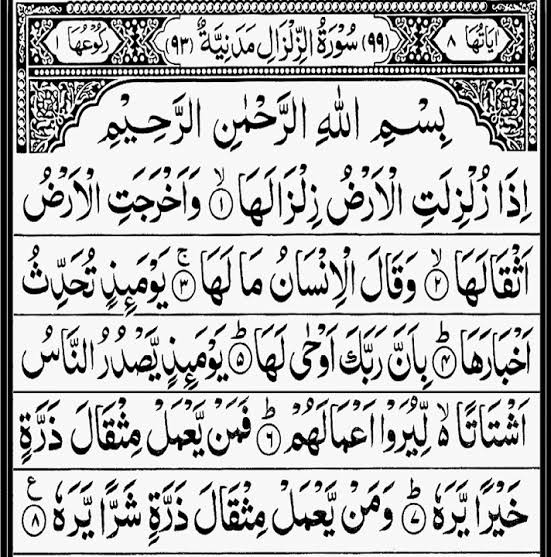 اٰيَاتُهَا ٨ (٩٩) سُوْرَةُ الزِّلْزَالِ مَدَنِيَّةٌ (٩٣) رُكُوْعُهَا ١
بِسْمِ اللهِ الرَّحْمٰنِ الرَّحِيْمِ
اِذَا زُلْزِلَتِ الْاَرْضُ زِلْزَالَهَا ۙ﴿١﴾ وَاَخْرَجَتِ الْاَرْضُ
اَثْقَالَهَا ۙ﴿٢﴾ وَقَالَ الْاِنْسَانُ مَا لَهَا ۚ﴿٣﴾ يَوْمَئِذٍ تُحَدِّثُ
اَخْبَارَهَا ؕ﴿٤﴾ بِاَنَّ رَبَّكَ اَوْحٰى لَهَا ؕ﴿٥﴾ يَوْمَئِذٍ يَّصْدُرُ النَّاسُ
اَشْتَاتًا ۙ۬ لِّيُرَوْا اَعْمَالَهُمْ ؕ﴿٦﴾ فَمَنْ يَّعْمَلْ مِثْقَالَ ذَرَّةٍ
خَيْرًا يَّرَهٗ ؕ﴿٧﴾ وَمَنْ يَّعْمَلْ مِثْقَالَ ذَرَّةٍ شَرًّا يَّرَهٗ ﴿٨﴾ ع